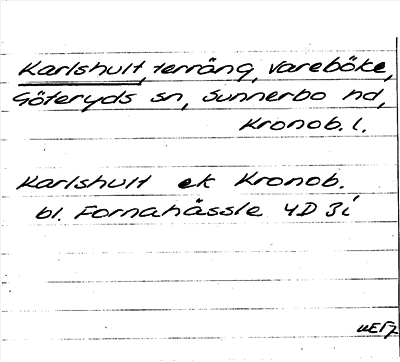 Karlshult, terräng, Vareböke,
Göteryds sn, Sunnerbo hd,
Kronob. l.
Karlshult ek Kronob.
bl. Fornahässle 4D 3i